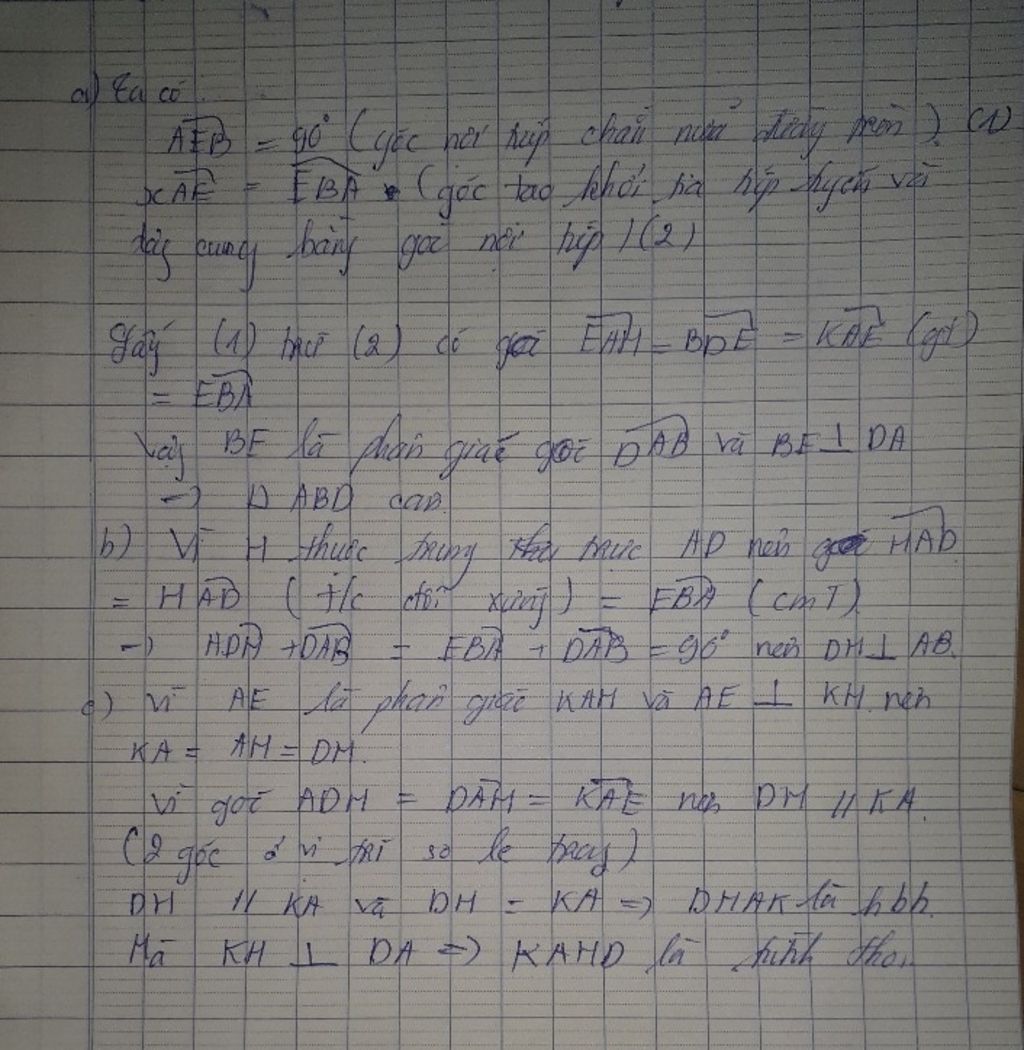 a) Ta có
AEB = 90° (góc nội tiếp chắn nửa đường tròn). (1)
xAE = EBA (góc tạo khởi tia tiếp tuyến và
dây cung bằng góc nội tiếp) (2)
Lấy (1) trừ (2) có góc EAH = BDE = KAE (gt)
= EBA
Vậy BE là phân giác góc DAB và BE ⊥ DA
→ Δ ABD cân.
b) Vì H thuộc trung trực AD nên góc HAD
= HAD (t/c đối xứng) = EBA (cmT)
→ ADH + DAB = EBA + DAB = 90° nên DH ⊥ AB.
c) Vì AE là phân giác KAH và AE ⊥ KH nên
KA = AH = DH.
Vì góc ADH = DAH = KAE nên DH // KA.
(2 góc ở vị trí so le trong)
DH // KA và DH = KA => DHAK là hbh.
Mà KH ⊥ DA => KAHD là hình thoi.